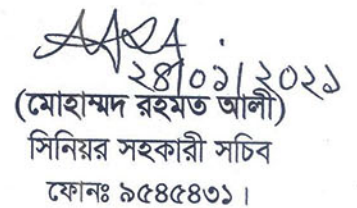 ২৪/০১/২০২১
(মোহাম্মদ রহমত আলী)
সিনিয়র সহকারী সচিব
ফোনঃ ৯৫৪৫৪৩১।